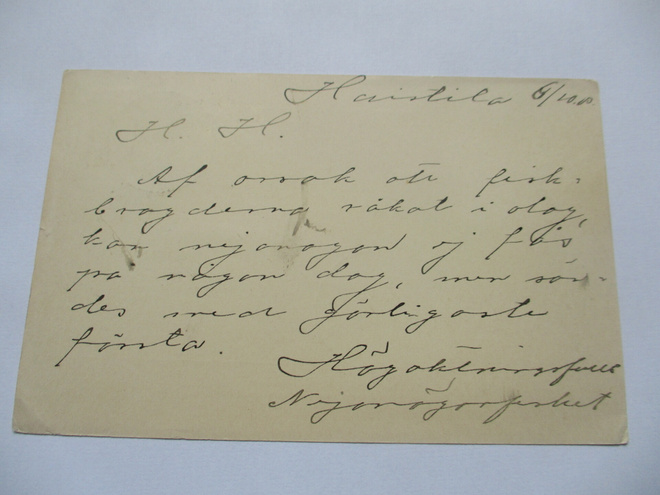 Haistila 6/10.0
H. H.
Af orsak att fisk-
bragderna råkat i olag,
kan nejonögon ej fås
på någon dag, men sän-
des med görligaste
första.
Högaktningsfullt
Nejonögonfisket